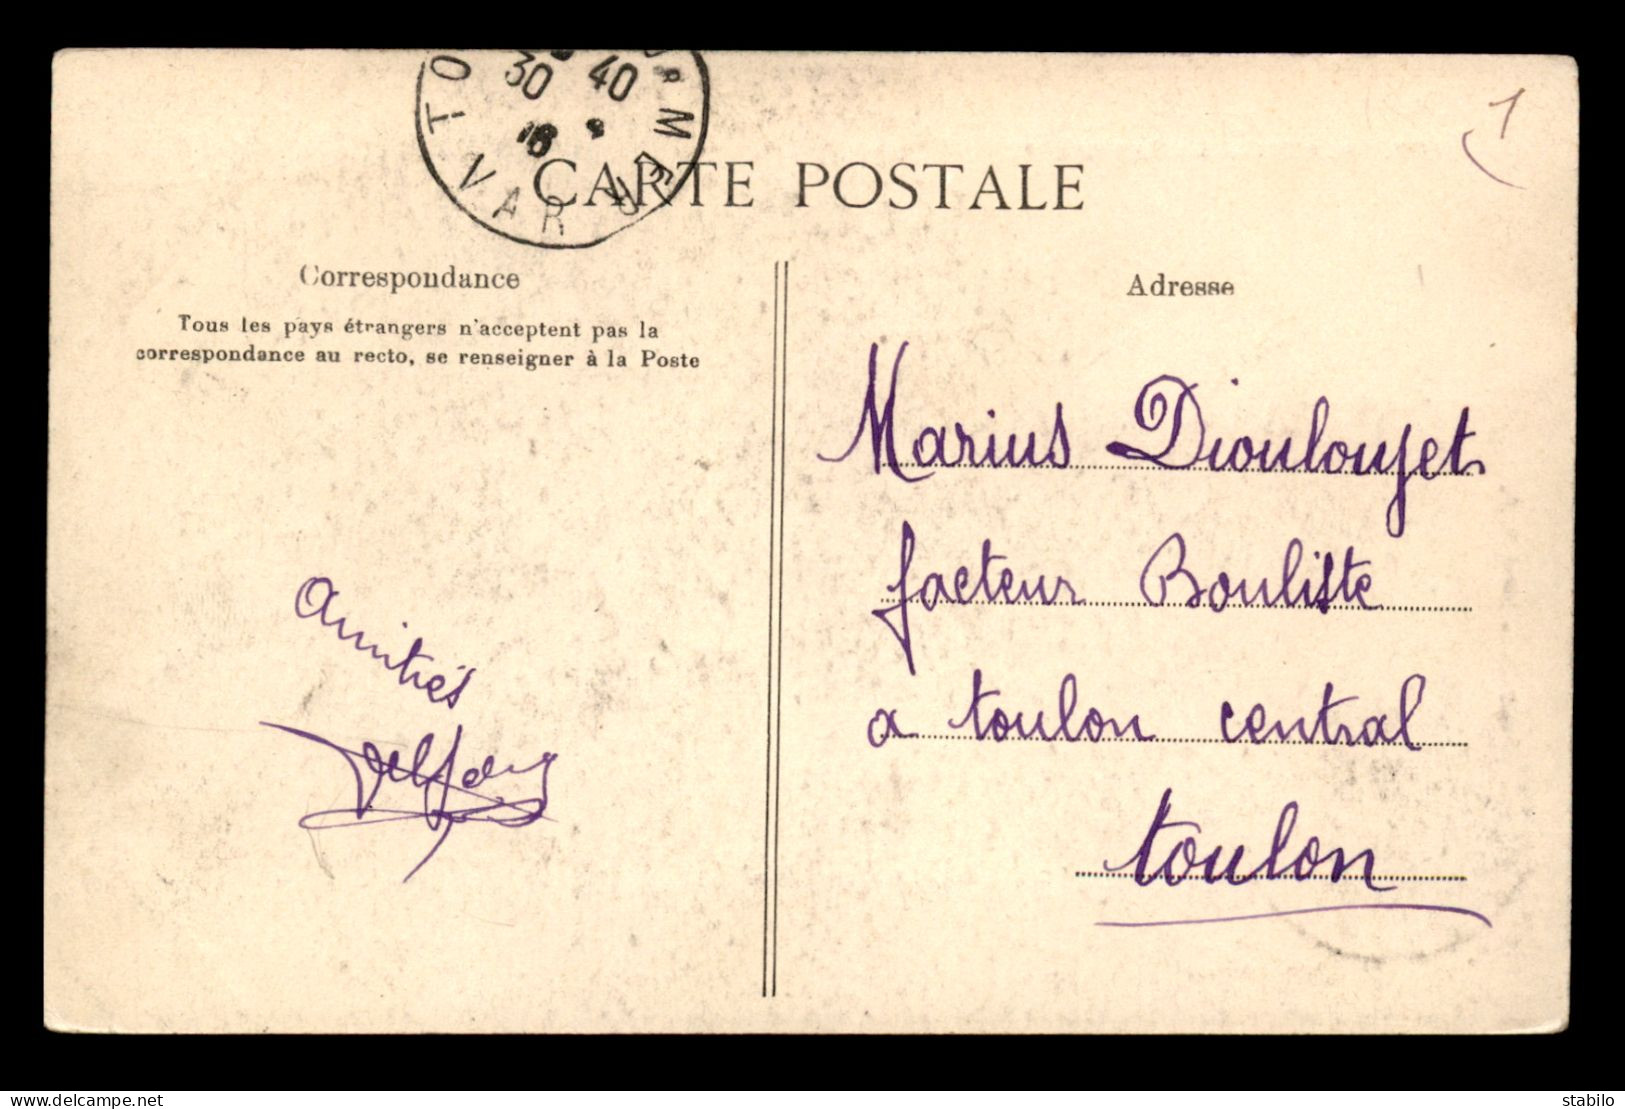 30 40
18
TO
VAR
CARTE POSTALE
Correspondance
Tous les pays étrangers n'acceptent pas la
correspondance au recto, se renseigner à la Poste
Amitiés
Adresse
1
Marius Diouloufet
facteur Bouliste
a toulon central
toulon
delcampe.net
stabilo